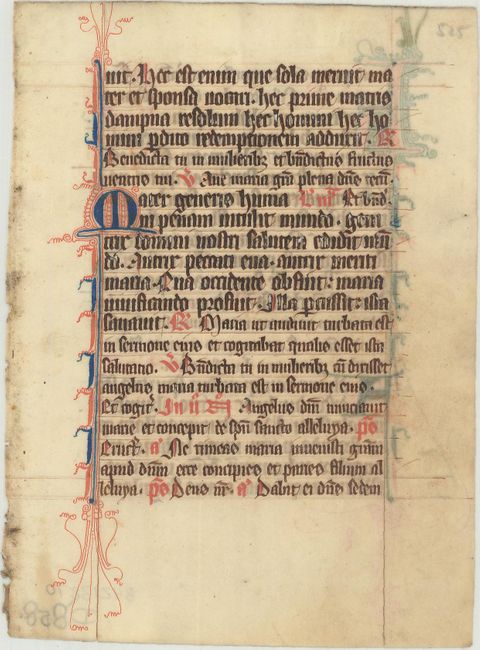 uit. Hec est enim que sola meruit ma
ter et sponsa vocari. hec prime matris
dampna resoluit hec homini hec ho
mini p̄dito redemptionem adduxit. R̃
Benedicta tu in mulieribꝫ et bn̄dictus fructus
uentris tui. V̄ Aue maria grā plena dn̄s tecū.
Mater generis huma Et bn̄d̄.
ni penam intulit mundo. geni
trix domini nostri salutem edidit mū
do. Auctrix peccati eua. auctrix meriti
maria. Eua occidendo obfuit: maria
uiuificando profuit. Illa percussit: ista
sanauit. R̃ Maria ut audiuit turbata est
in sermone eius et cogitabat qualis esset ista
salutatio. V̄ Bn̄dicta tu in mulieribꝫ cū dixisset
angelus maria turbata est in sermone eius.
Et cogit̄. In ij Angelus dn̄i nunciauit
marie et concepit de sp̄u sancto alleluya. ps̄
a᷎ Ne timeas maria inuenisti grām
apud dn̄m ecce concipies et paries filium al
leluya. ps̄ Deus nr̄. a᷎ Dabit ei dn̄s sedem
255
858